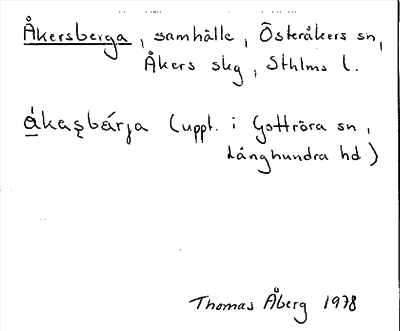 Åkersberga, samhälle, Österåkers sn,
Åkers skg, Sthlms l.
åkaşbárja (uppt. i Gottröra sn,
Långhundra hd)
Thomas Åberg 1978